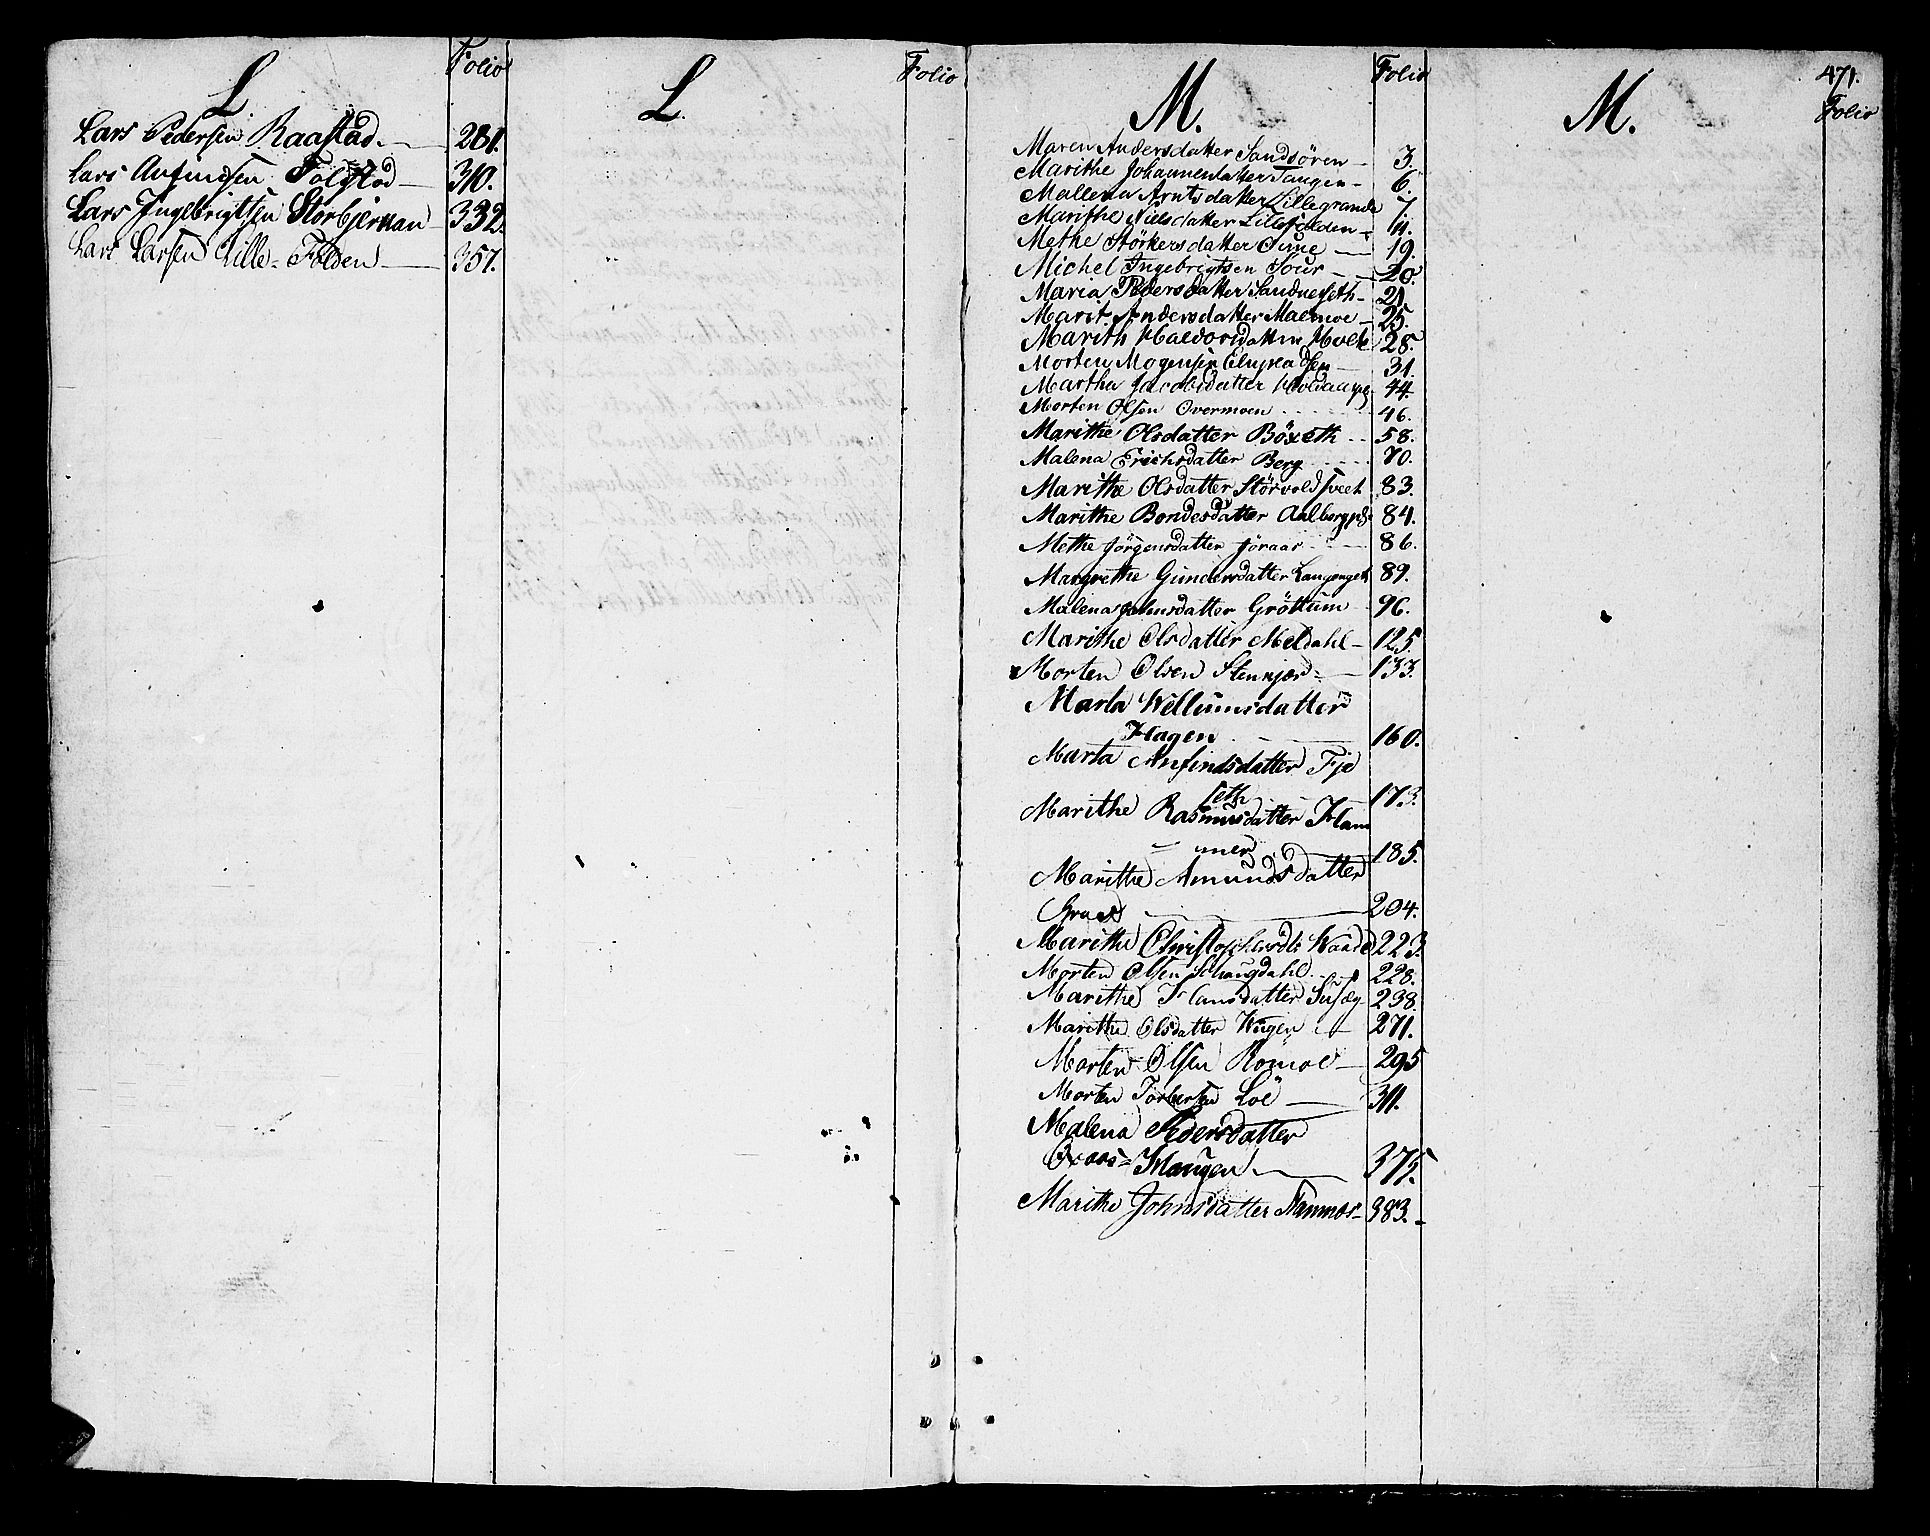 L
Folio
Lars Pedersen Raastad. 281.
Lars Anfindsen Folstad 310.
Lars Ingebrigtsen Storbjernan 332.
Lars Larsen Lille-Folden 357.
L.
Folio
M.
Folio
Maren Andersdatter Sandsören 3.
Marithe Johannesdatter Tangen 6.
Mallena Arntsdatter Lillegrande 7.
Marithe Nielsdatter Lillefolden 11.
Methe Störkersdatter 19.
Michel Ingebrigtsen 20.
Maria Pedersdatter Sandnesseth 21.
Marit Andersdatter Malmoe 25.
Marith Haldorsdatter 28.
Morten Mogensen 31.
Martha Jacobsdatter 44.
Morten Olsen Overmoen 46.
Marithe Olsdatter Böxeth 58.
Malena Erichsdatter Berg 70.
Marithe Olsdatter Störvold 83.
Marithe Bondesdatter Aalberg 84.
Methe Jörgensdatter Joraas 86.
Margrethe Gundersdatter 89.
Malena Johnsdatter Gröttum 96.
Marithe Olsdatter Meldahl 125.
Morten Olsen Stenkjær 133.
Marta Willumsdatter
Hagen 160.
Marta Anfindsdatter Fje
seth 173.
Marithe Rasmusdatter Ham
mer 185.
Marithe Amundsdatter
204.
Marithe 223.
Morten Olsen Schaugdahl 228.
Marithe Hansdatter 238.
Marithe Olsdatter 271.
Morten Olsen Römoe 295
Morten Torbersen Löe 311.
Malena Pedersdatter
Oxaas-Haugen 375.
Marithe Johnsdatter Namnos 383.
M.
471.
Folio